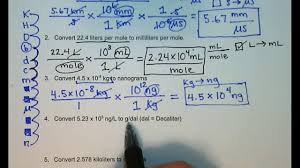 5.67 km × 10⁶ mm × 1 s = 5.67 mm
s 1 km 10⁶ µs µs
2. Convert 22.4 liters per mole to milliliters per mole.
22.4 L × 10³ mL = 2.24×10⁴ mL mL L → mL
mole 1 L mole mole
3. Convert 4.5 x 10⁻⁸ kg to nanograms
kg → ng
4.5×10⁻⁸ kg × 10¹² ng = 4.5 x 10⁴ ng
1 1 kg
4. Convert 5.23 x 10 ng/L to g/dal (dal = Decaliter)
5. Convert 2.578 kiloliters to